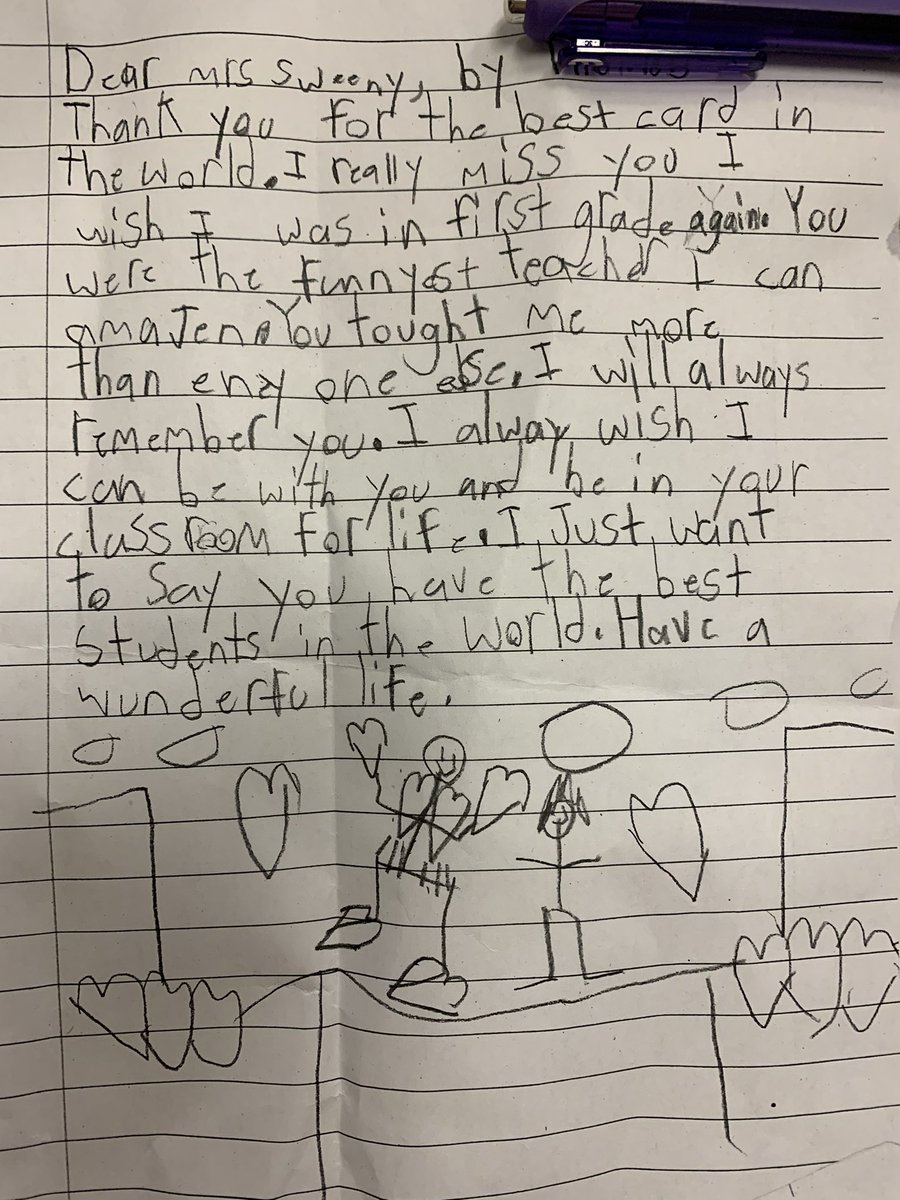 Dear mrs sweeny, by
Thank you for the best card in
the world. I really miss you I
wish I was in first grade again. You
were the funnyest teacher I can
amaJen. You tought me more
than eney one else. I will always
remember you. I alway wish I
can be with you and be in your
classroom for life. I Just want
to Say you have the best
students in the world. Have a
wunderful life.